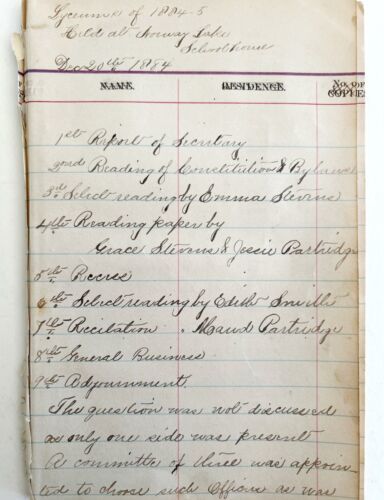 Lyceum of 1884-5
Held at Norway Lake
Schoolhouse
Dec 20th 1884
NAME. RESIDENCE. No. OF COPIES
1st Report of Secretary
2ond Reading of Constitution & Bylaws
3rd Select reading by Emma Stevens
4th Reading paper by
Grace Stevens & Jessie Partridge
5th Recess
6th Select reading by Edith Smith
7th Recitation Maud Partridge
8th General Business
9th Adjournment.
The question was not discussed
as only one side was present
A committe of three was appoin-
ted to choose such Officers as was